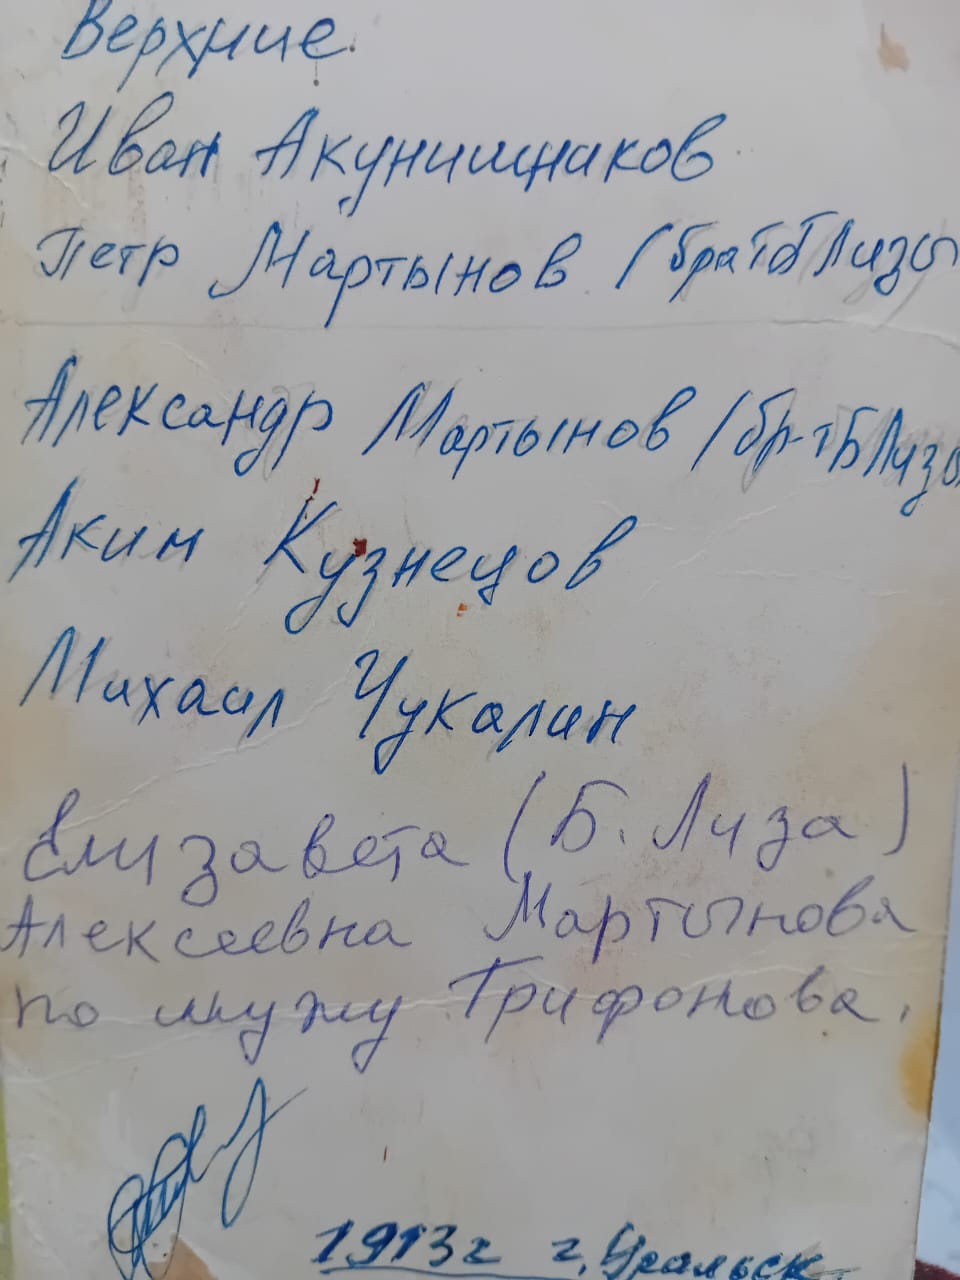 Верхние.
Иван Акунишников
Петр Мартынов (братБ Лизы
Александр Мартынов (бр-тБ Лизы
Аким Кузнецов
Михаил Чукалин
Елизавета (Б. Лиза)
Алексеевна Мартынова
по мужу Трифонова.
1913г г. Уральск